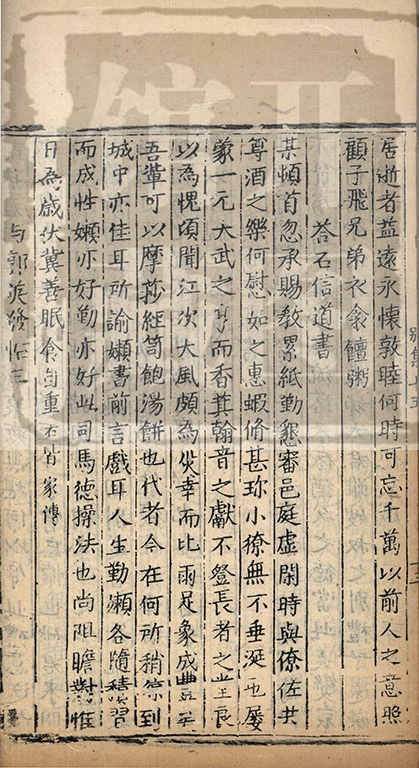 居逝者益遠永懷敦睦何時可忘千萬以前人之意照
顧子飛兄弟衣衾饘粥
答石信道書
某頓首忽承賜教累紙勤懇審邑庭虛閑時與僚佐共
尊酒之樂何慰如之惠蝦脩甚珍小獠無不垂涎也屢
蒙一元大武之而香萁翰音之獻不登長者之堂良
以為愧頃聞江次大風頗為災幸而比雨足象成豐年
吾輩可以摩莎經笥飽湯餅也代者今在何所稍涼到
城中亦佳耳所諭嬾書前言戲耳人生勤嬾各隨積習
而成性嬾亦好勤亦好此司馬德操法也尚阻瞻對惟
日為歲伏冀善眠食自重右皆家傳
与郭英發帖三